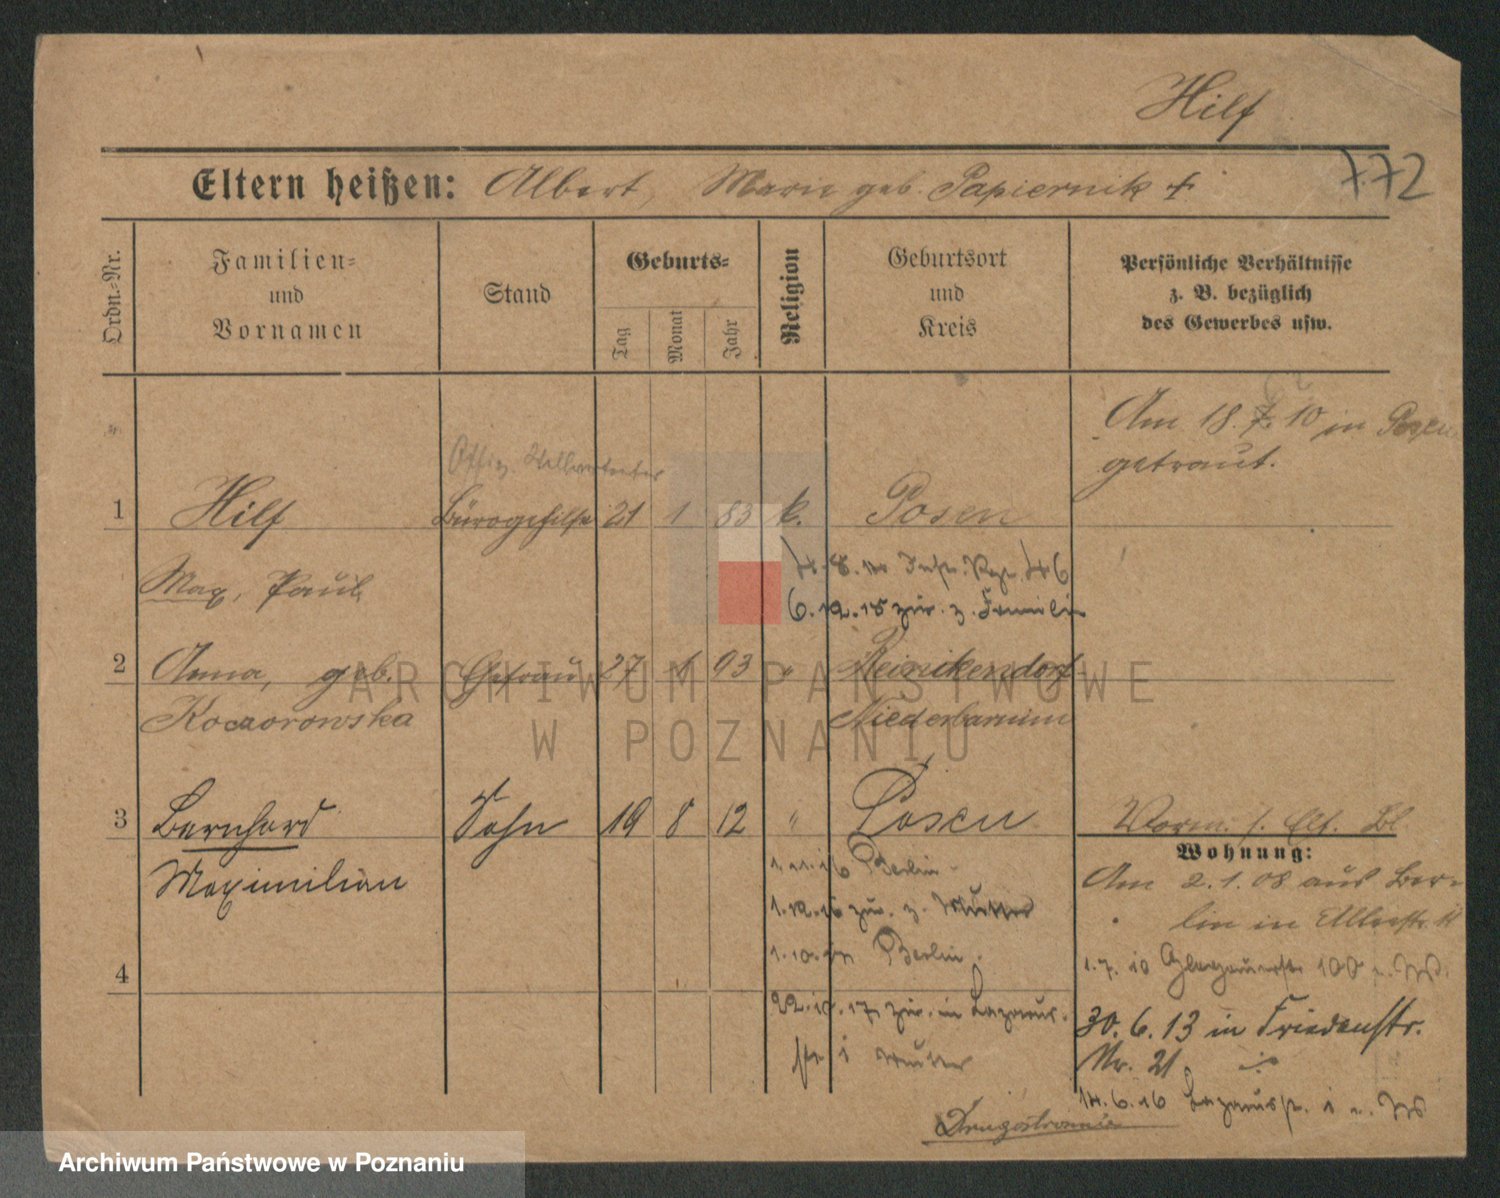 Hilf
Eltern heißen: Albert, Marie geb. Papiernik †
772
Ordn.-Nr.
Familien-
und
Vornamen
Stand
Geburts-
Tag
Monat
Jahr
Religion
Geburtsort
und
Kreis
Persönliche Verhältnisse
z. B. bezüglich
des Gewerbes usw.
Am 18. 7. 10 in Posen
getraut.
Offiz. Stellvertreter
1 Hilf Bürogehilfe 21 1 83 k. Posen
Max, Paul
4. 8. Inftr. Rgt. 46
6.12.15 zur. z. Familie
2 Anna, geb. Ehefrau 27 1 93 " Reinikendorf
Koczorowska Niederbarnim
3 Bernhard Sohn 19 8 12 " Posen
Maximilian
Vorm. s. Elt. Bl.
Wohnung:
1.11.16 Berlin
Am 2.1.08 aus Ber-
1.12.16 zur. z. Mutter
lin in
Berlin
1.7. 10 Glogauerstr. 100
4
22.10.17 zur. in Lazarus-
str. 1 Mutter
30.6.13 in Friedenstr.
Nr. 21
14.6.16 Lazarusstr. 1
Druga strona
ARCHIWUM PAŃSTWOWE
W POZNANIU
Archiwum Państwowe w Poznaniu